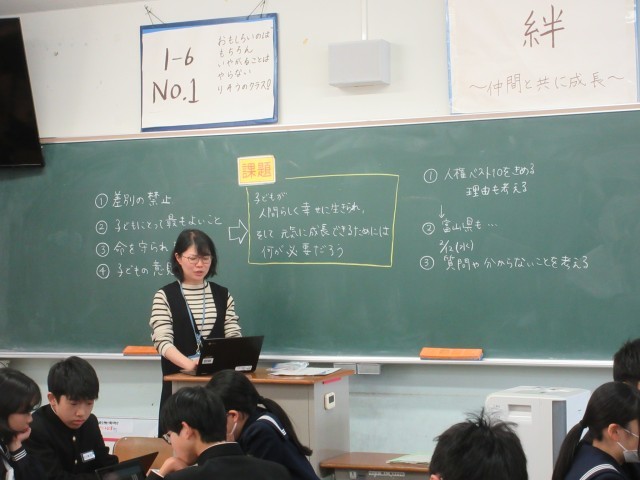 1-6
NO.1
おもしろいのは
もちろん
いやがることは
やらない
絆
～仲間と共に成長～
課題
① 差別の禁止
② 子どもにとって最もよいこと
③ 命を守られ
④ 子どもの意見
子どもが
人間らしく幸せに生きられ、
そして元気に成長できるためには
何が必要だろう
① 人権ベスト10をきめる
理由も考える
↓
② 富山県も…
(水)
③ 質問や分からないことを考える